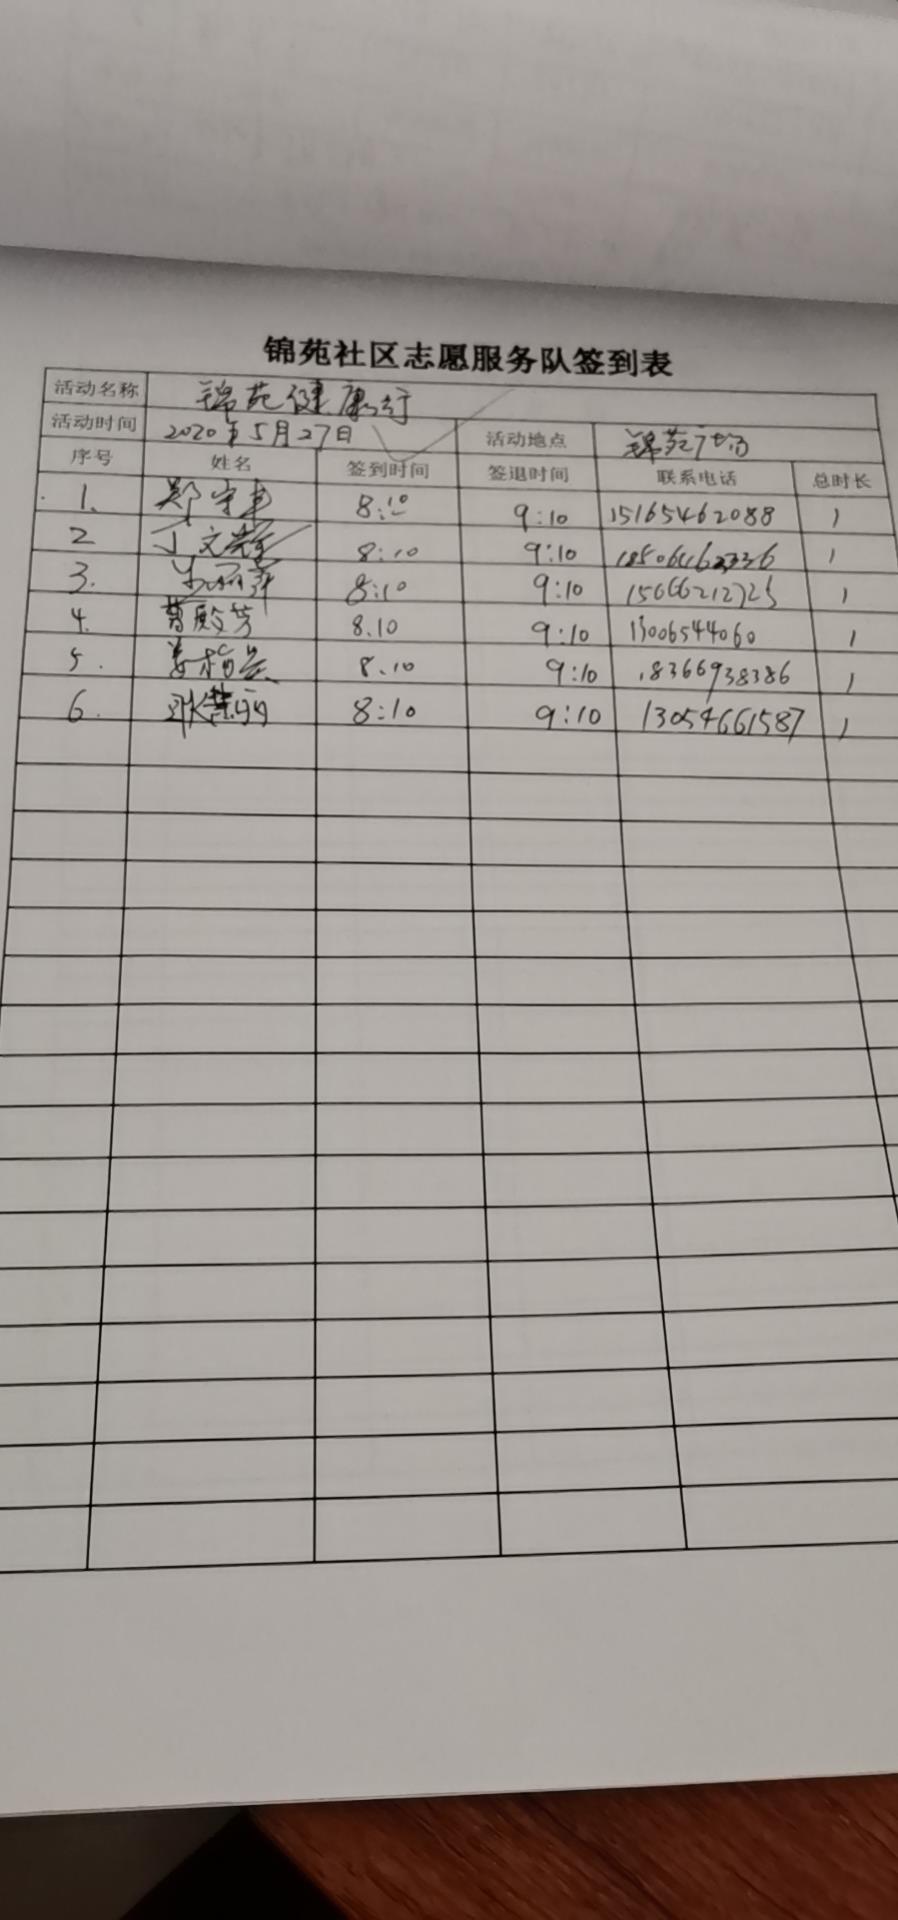 锦苑社区志愿服务队签到表
活动名称 锦苑健康行
活动时间 2020年5月27日 活动地点 锦苑广场
序号 姓名 签到时间 签退时间 联系电话 总时长
1、 郑守丰 8:10 9:10 15165462088 1
2 丁文 8:10 9:10 1
3. 8:10 9:10 1
4. 曹殿芳 8.10 9:10 13006544060 1
5. 8.10 9:10 18366938386 1
6. 8:10 9:10 13054661587 1